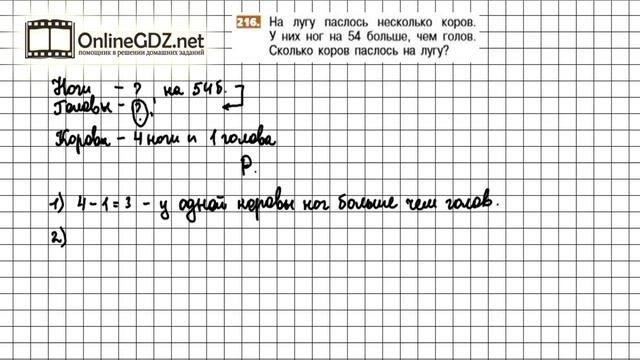 OnlineGDZ.net
помощник в решении домашних заданий
216. На лугу паслось несколько коров.
У них ног на 54 больше, чем голов.
Сколько коров паслось на лугу?
Ноги - ? на 54 б.
Головы - ?
Корова - 4 ноги и 1 голова
Р.
1) 4-1=3 - у одной коровы ног больше чем голов.
2)